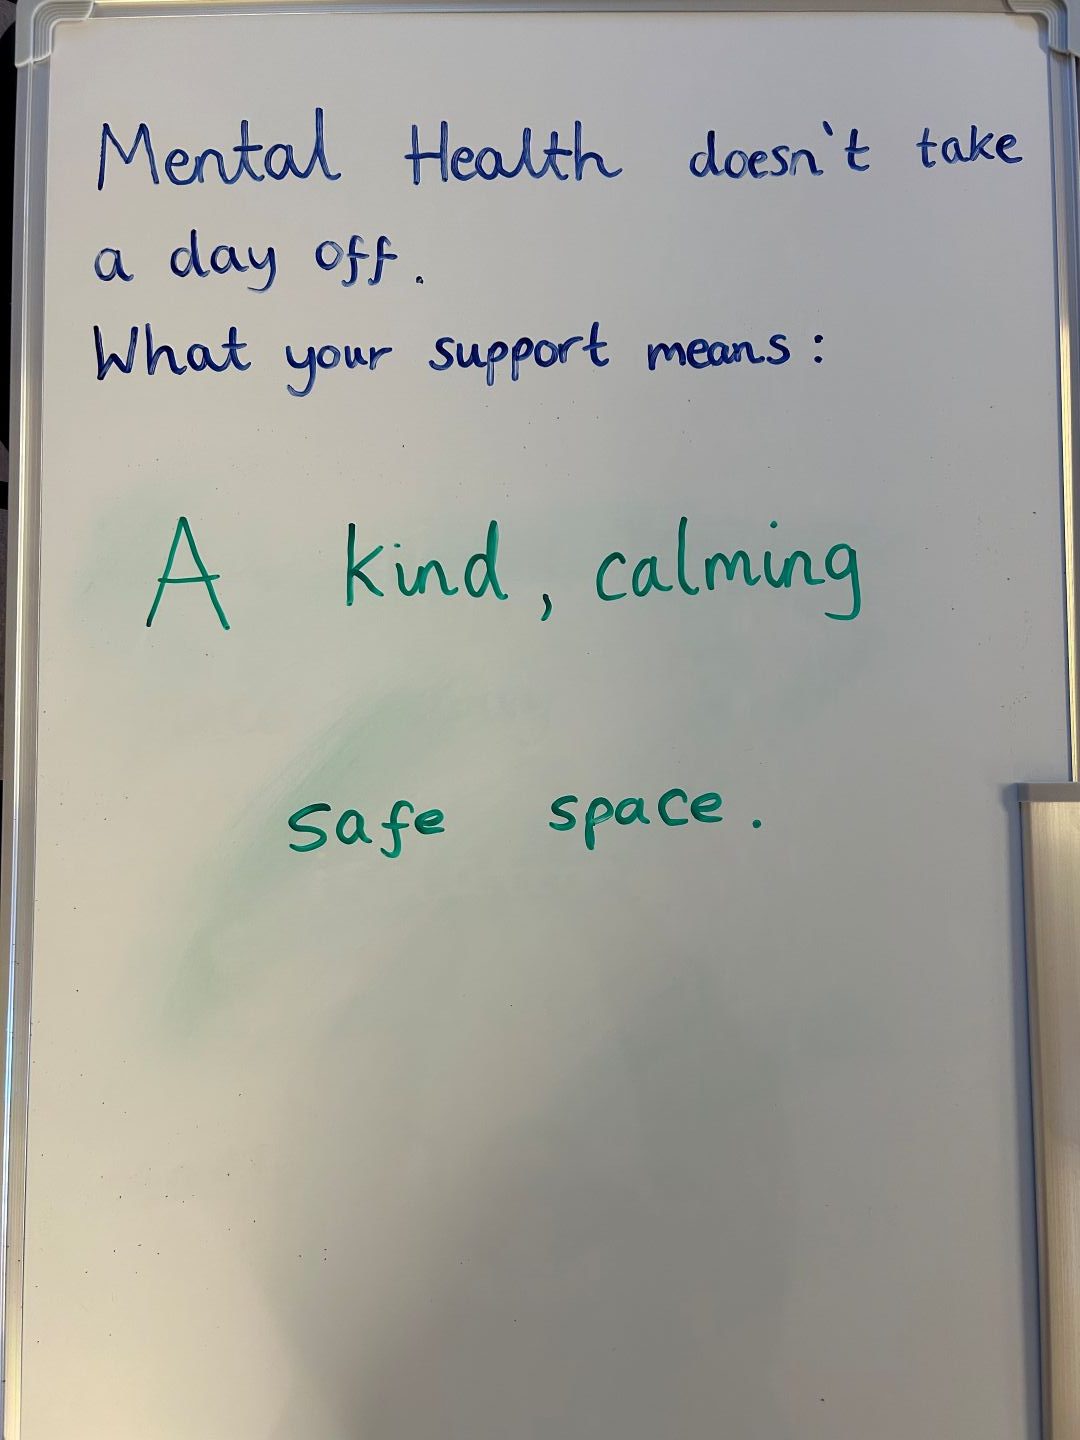 Mental Health doesn't take
a day off.
What your support means:
A kind, calming
safe space.